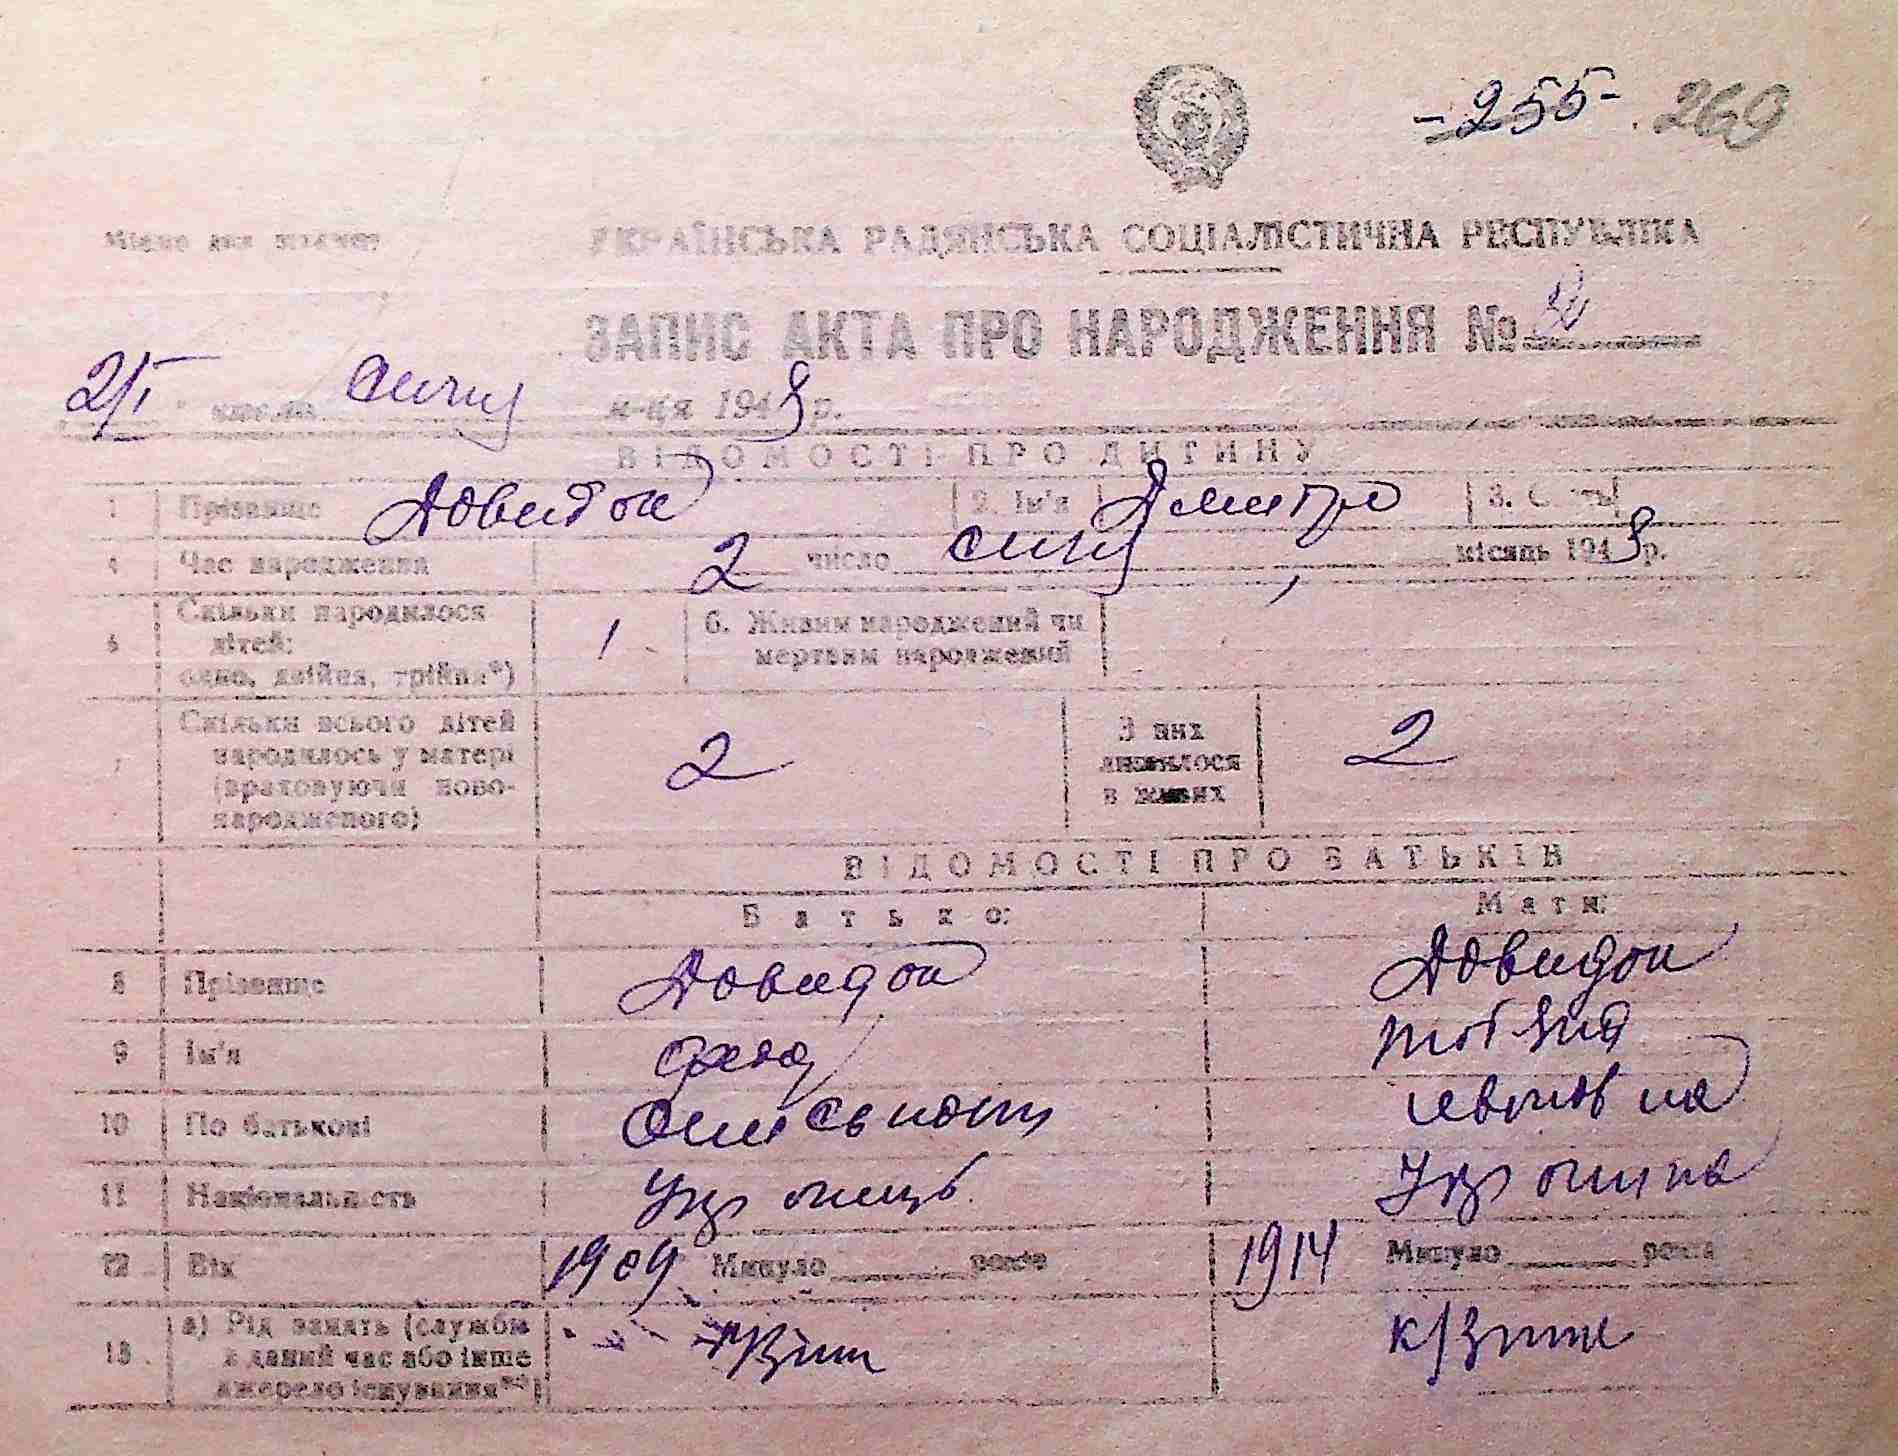 -255- 269
Місце для штампу
УКРАЇНСЬКА РАДЯНСЬКА СОЦІАЛІСТИЧНА РЕСПУБЛІКА
ЗАПИС АКТА ПРО НАРОДЖЕННЯ №
2/I число січня м-ця 1948 р.
ВІДОМОСТІ ПРО ДИТИНУ
1 Прізвище Довидюк 2. Ім'я Дмитро 3. Стать
4 Час народження 2 число січня місяць 1948 р.
5 Скільки народилося дітей: одно, двійня, трійня*) 1 6. Живим народжений чи мертвим народжений
7 Скільки всього дітей народилось у матері (враховуючи новонародженого) 2 З них лишилося в живих 2
ВІДОМОСТІ ПРО БАТЬКІВ
Батько: Мати:
8 Прізвище Довидюк Довидюк
9 Ім'я
10 По батькові
11 Національність Українець Українка
12 Вік 1909 Минуло років 1914 Минуло років
13 а) Рід занять (служби в даний час або інше джерело існування**) к/зник к/зник